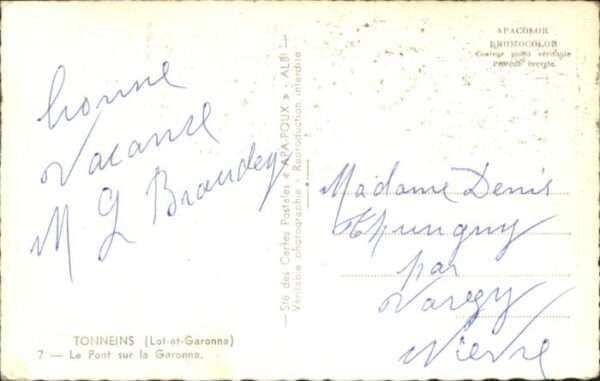 bonne
Vacance
M G Braudey
TONNEINS (Lot-et-Garonne)
7 — Le Pont sur la Garonna.
Sté des Cartes Postales « APA-POUX » - ALBI
Véritable photographie - Reproduction interdite
APACOLOR
BROMOCOLOR
Couleur photo véritable
Procédé exclfs.
Madame Denis
par
Varzy
Nièvre